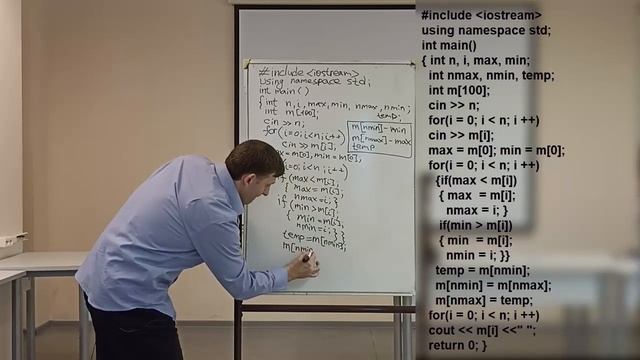 #include <iostream>
using namespace std;
int main()
{ int n, i, max, min, nmax, nmin;
temp;
int m[100];
cin >> n;
for(i=0; i<n; i++)
cin >> m[i];
= m[0]; min = m[0];
i=0; i<n; i++)
if (max < m[i];
{ max = m[i];
nmax = i; }
if (min > m[i];
{ min = m[i];
nmin = i; } }
temp = m[nmin];
m[nmin
m[nmin] - min
m[nmax] - max
temp
#include <iostream>
using namespace std;
int main()
{ int n, i, max, min;
int nmax, nmin, temp;
int m[100];
cin >> n;
for(i = 0; i < n; i ++)
cin >> m[i];
max = m[0]; min = m[0];
for(i = 0; i < n; i ++)
{if(max < m[i])
{ max = m[i];
nmax = i; }
if(min > m[i])
{ min = m[i];
nmin = i; }}
temp = m[nmin];
m[nmin] = m[nmax];
m[nmax] = temp;
for(i = 0; i < n; i ++)
cout << m[i] <<" ";
return 0; }